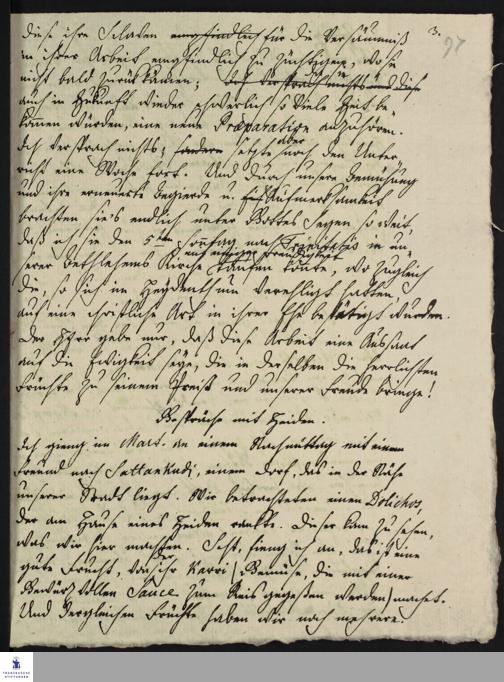 3.
97
diese ihre Sclaven empfindlich für die Versäumniß
in ihrer Arbeit empfindlich zu züchtigen, wo sie
nicht bald zurückkämen; Ich versprach nichts und diese
auch in Zukunft wieder schwerlich so viele Zeit be-
kommen würden, eine neue Præparation anzuhören.
Ich versprach nichts; sondern setzte aber noch den Unter-
richt eine Woche fort. Und durch unsere Bemühung
und ihre erneuerte Begierde u. Aufmerksamkeit
brachten sie's endlich unter Gottes Segen so weit,
daß ich sie den 5ten Sonntag nach Trinitatis in un-
serer Bethlehems Kirche mit Freudigkeit taufen konte, wo zugleich
die, so sich im Heydenthum verehligt hatten,
auf eine christliche Art in ihrer Ehe bestätigt wurden.
Der HErr gebe nur, daß diese Arbeit eine Aussaat
auf die Ewigkeit seye, die in derselben die herrlichsten
Früchte zu seinem Preiß und unserer Freude bringe!
Gespräche mit Heiden.
Ich gieng im Mart. an einem Nachmittag mit einem
Freund nach Sattankudi, einem Dorf, das in der Nähe
unserer Stadt liegt. Wir betrachteten einen Dolichos,
der am Hause eines Heiden rankte. Dieser kam zu sehen,
was wir hier machten. Seht, fieng ich an, das ist eine
gute Frucht, die ihr Karri (Gemüse, die mit einer
Gewürzvollen Sauce zum Reis gegessen werden) machet.
Und dergleichen Früchte haben wir noch mehrere.
FRANCKESCHE
STIFTUNGEN